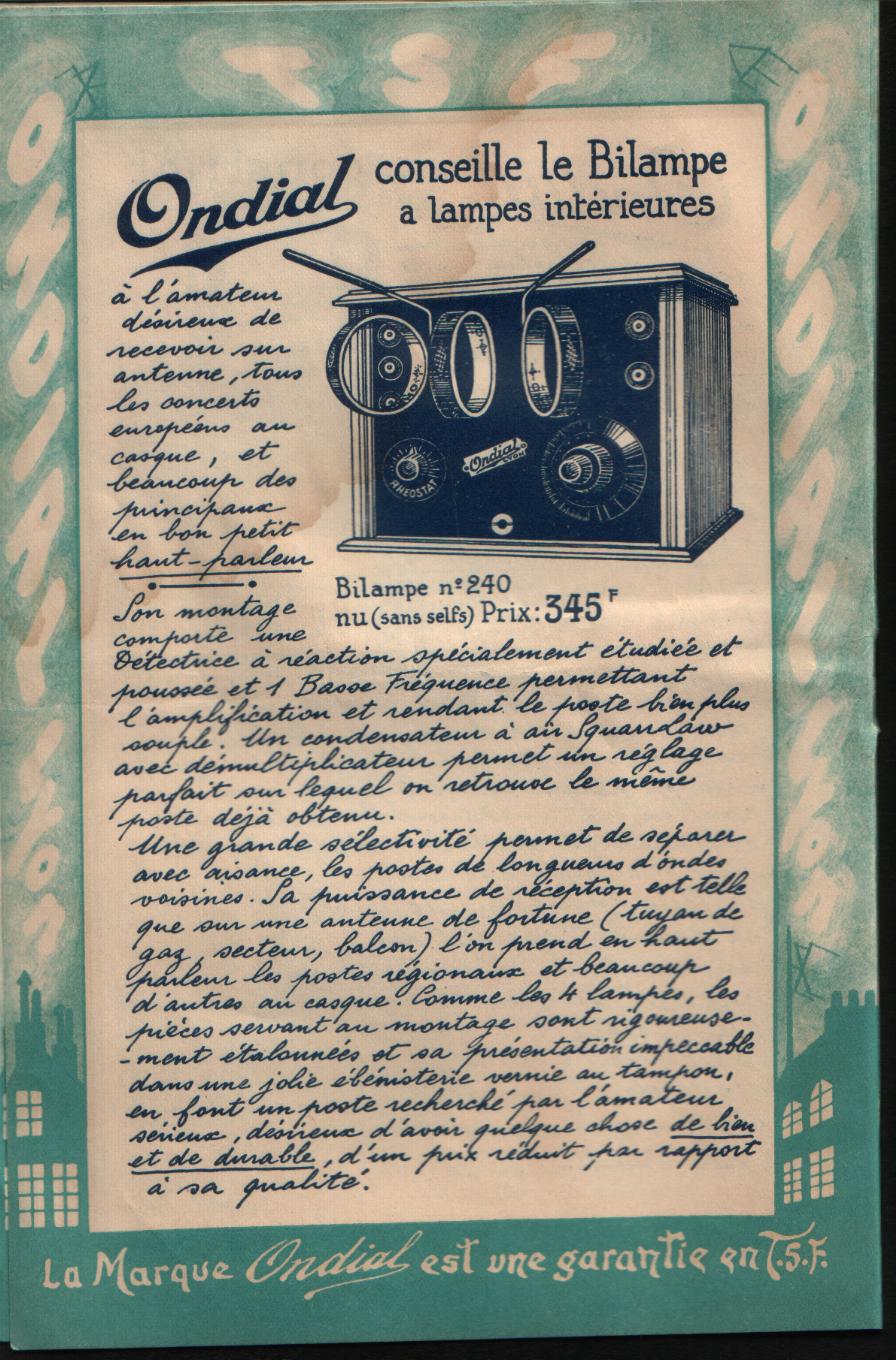 T S F
ONDIAL
Lyon
ONDIAL
Lyon
Ondial conseille le Bilampe
a lampes intérieures
à l'amateur
désireux de
recevoir sur
antenne, tous
les concerts
européens au
casque, et
beaucoup des
principaux
en bon petit
haut-parleur
RHEOSTAT
Ondial
LYON
Bilampe nº 240
nu (sans selfs) Prix: 345 F
Son montage
comporte une
Détectrice à réaction spécialement étudiée et
poussée et 1 Basse Fréquence permettant
l'amplification et rendant le poste bien plus
souple. Un condensateur à air Squar Law
avec démultiplicateur permet un réglage
parfait sur lequel on retrouve le même
poste déjà obtenu.
Une grande sélectivité permet de séparer
avec aisance, les postes de longueurs d'ondes
voisines. Sa puissance de réception est telle
que sur une antenne de fortune (tuyau de
gaz, secteur, balcon) l'on prend en haut
parleur les postes régionaux et beaucoup
d'autres au casque. Comme les 4 lampes, les
pièces servant au montage sont rigoureuse-
-ment étalonnées et sa présentation impeccable
dans une jolie ébénisterie vernie au tampon,
en font un poste recherché par l'amateur
sérieux, désireux d'avoir quelque chose de bien
et de durable, d'un prix réduit par rapport
à sa qualité.
La Marque Ondial est une garantie en T.S.F.